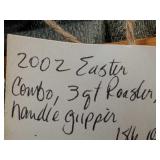 2002 Easter
Combo, 3 qt Roaster,
handle gripper